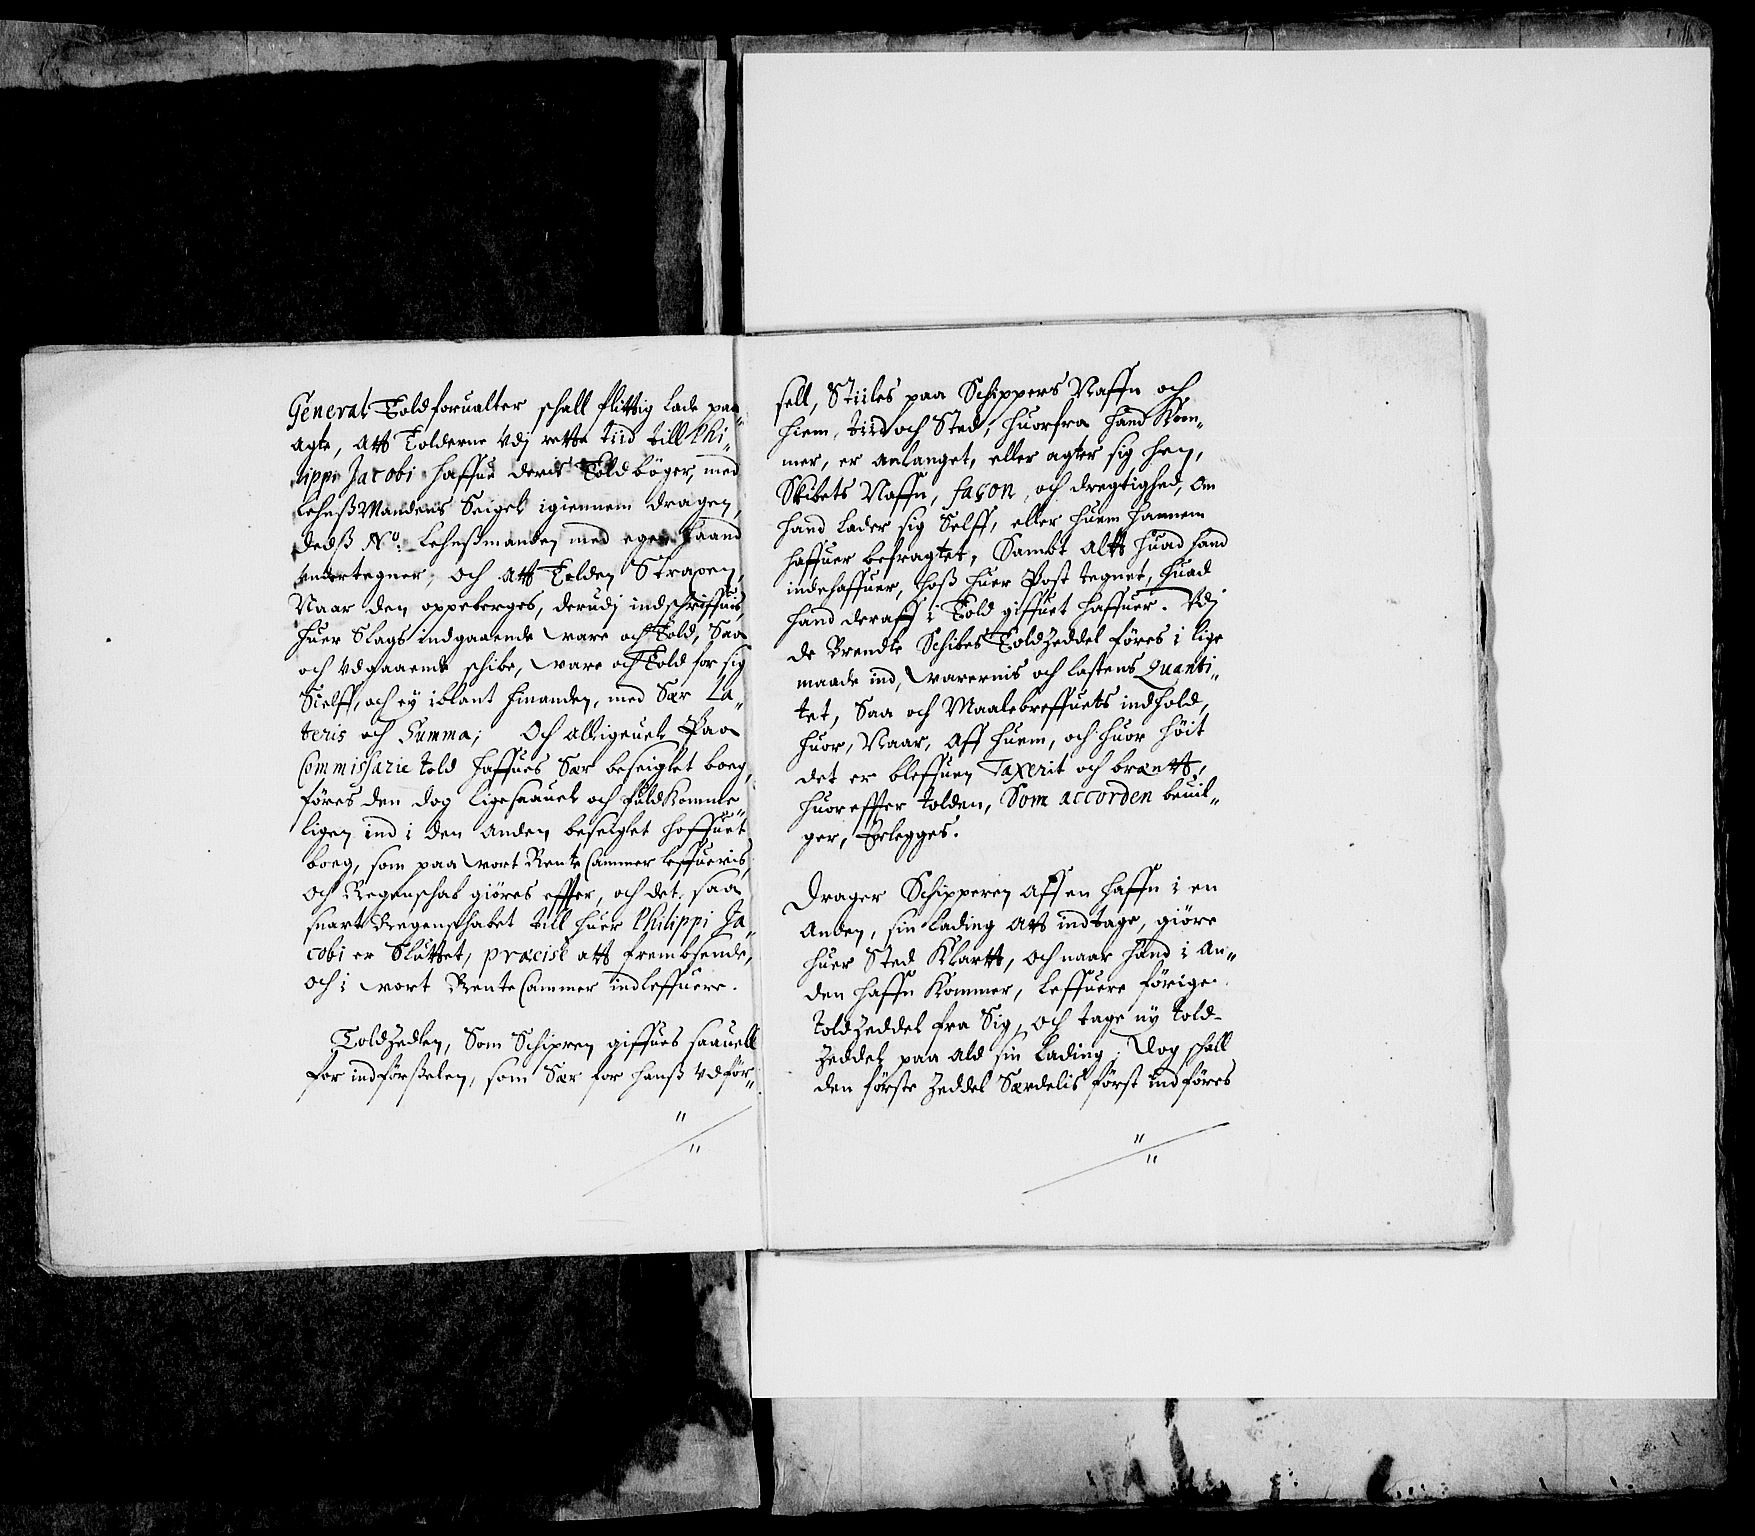 General Toldforualter schall flittig lade paa„
agte, Att Tolderne vdj rette tiid till Phi„
lippi Jacobi haffue deris Toldbøger, med
Lehnßmandens Seigel igiennem dragen,
dedß No: Lehnßmanden med egen haand
vndertegner, och Att Tolden Straxen,
Naar den oppeberges, derudj indschriffuis,
huer Slags indgaaende ware och Told, Saa
och vdgaaende schibe, ware och Told for sig
Sielff, och ey iblant hinanden, med Sær La„
teris och Summa; Och alligeuel Paa
Commissarie told haffues Sær beseiglet boeg,
føres den dog ligesaauel och fuldkomme„
ligen ind i den Anden beseiglet hoffuet
boeg, som paa wort Rente Cammer leffueris,
Och Regenschab giøres effter, och det, saa
snart Regenschabet till huer Philippi Ja„
cobi er Sluttet, præcise att frembsende,
och i wort Rente Cammer indleffuere.
Toldzedlen, Som Schipren giffues saauell
for indførßelen, som Sær for hanß vdfør„
sell, Stiiles paa Schippers Naffn och
hiem, tiid och Sted, huorfra hand kom„
mer, er anlanget, eller agter sig hen,
Skibets Naffn, façon, och dregtighed, Om
hand lader sig Selff, eller huem hannem
haffuer befragtet, Sambt altt huad hand
indehaffuer, hoß huer Post tegnet, huad
hand deraff i Told giffuet haffuer. Vdj
de Brendte Schibes Toldzeddel føres i lige
maade ind, warernis och lastens Quanti„
tet, Saa och Maalebreffuets indhold,
huor, Naar, Aff huem, och huor høit
det er bleffuen Taxerit och brentt,
huoreffter tolden, Som accorden beuil„
ger, Erlegges.
Drager Schipperen Aff en haffn i en
Anden, sin Lading Att indtage, giøre
huer Sted Klartt, och naar hand i An„
den haffn kommer, leffuere førige
toldzeddel fra Sig, och tage ny told-
zeddel paa ald sin Lading; Dog schall
den første zeddel Særdelis først indføres